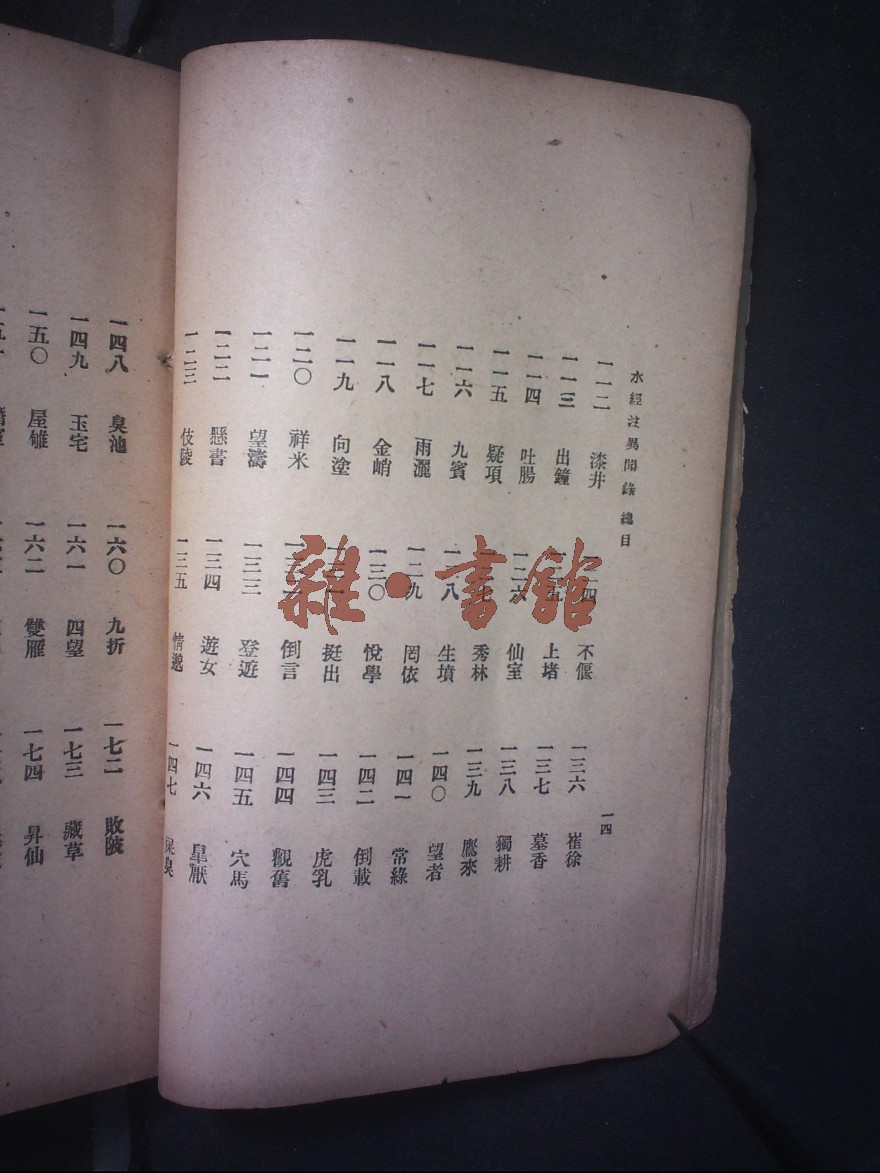 水經注異聞錄 總目
一四
一一二 漆井
一一三 出鐘
一一四 吐腸
一一五 疑項
一一六 九賓
一一七 雨灑
一一八 金蛸
一一九 向塗
一二〇 祥米
一二一 望濤
一二二 懸書
一二三 伎陵
一二四 不偃
一二五 上堵
一二六 仙室
一二七 秀林
一二八 生墳
一二九 罔依
一三〇 悅學
一三一 挺出
一三二 倒言
一三三 登遊
一三四 遊女
一三五 情邈
一三六 崔徐
一三七 墓香
一三八 獨耕
一三九 鷹來
一四〇 望者
一四一 常綠
一四二 倒載
一四三 虎乳
一四四 觀舊
一四五 穴馬
一四六 皐厭
一四七
一四八 臭池
一四九 玉宅
一五〇 屋雊
一六〇 九折
一六一 四望
一六二 雙雁
一七二 敗陂
一七三 藏草
一七四 昇仙
雜·書館